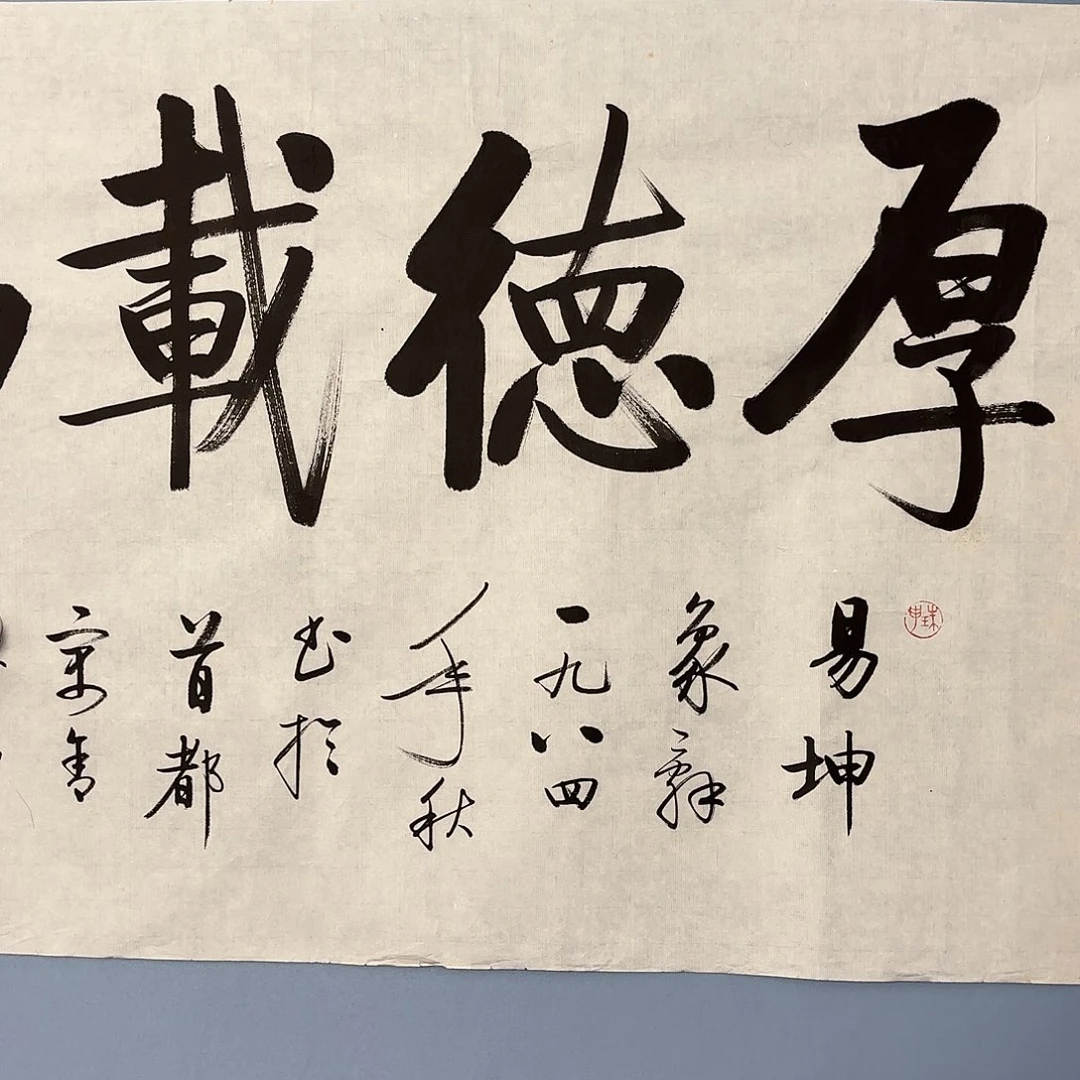 厚德載
易坤
象辞
一九八四
年秋
书於
首都